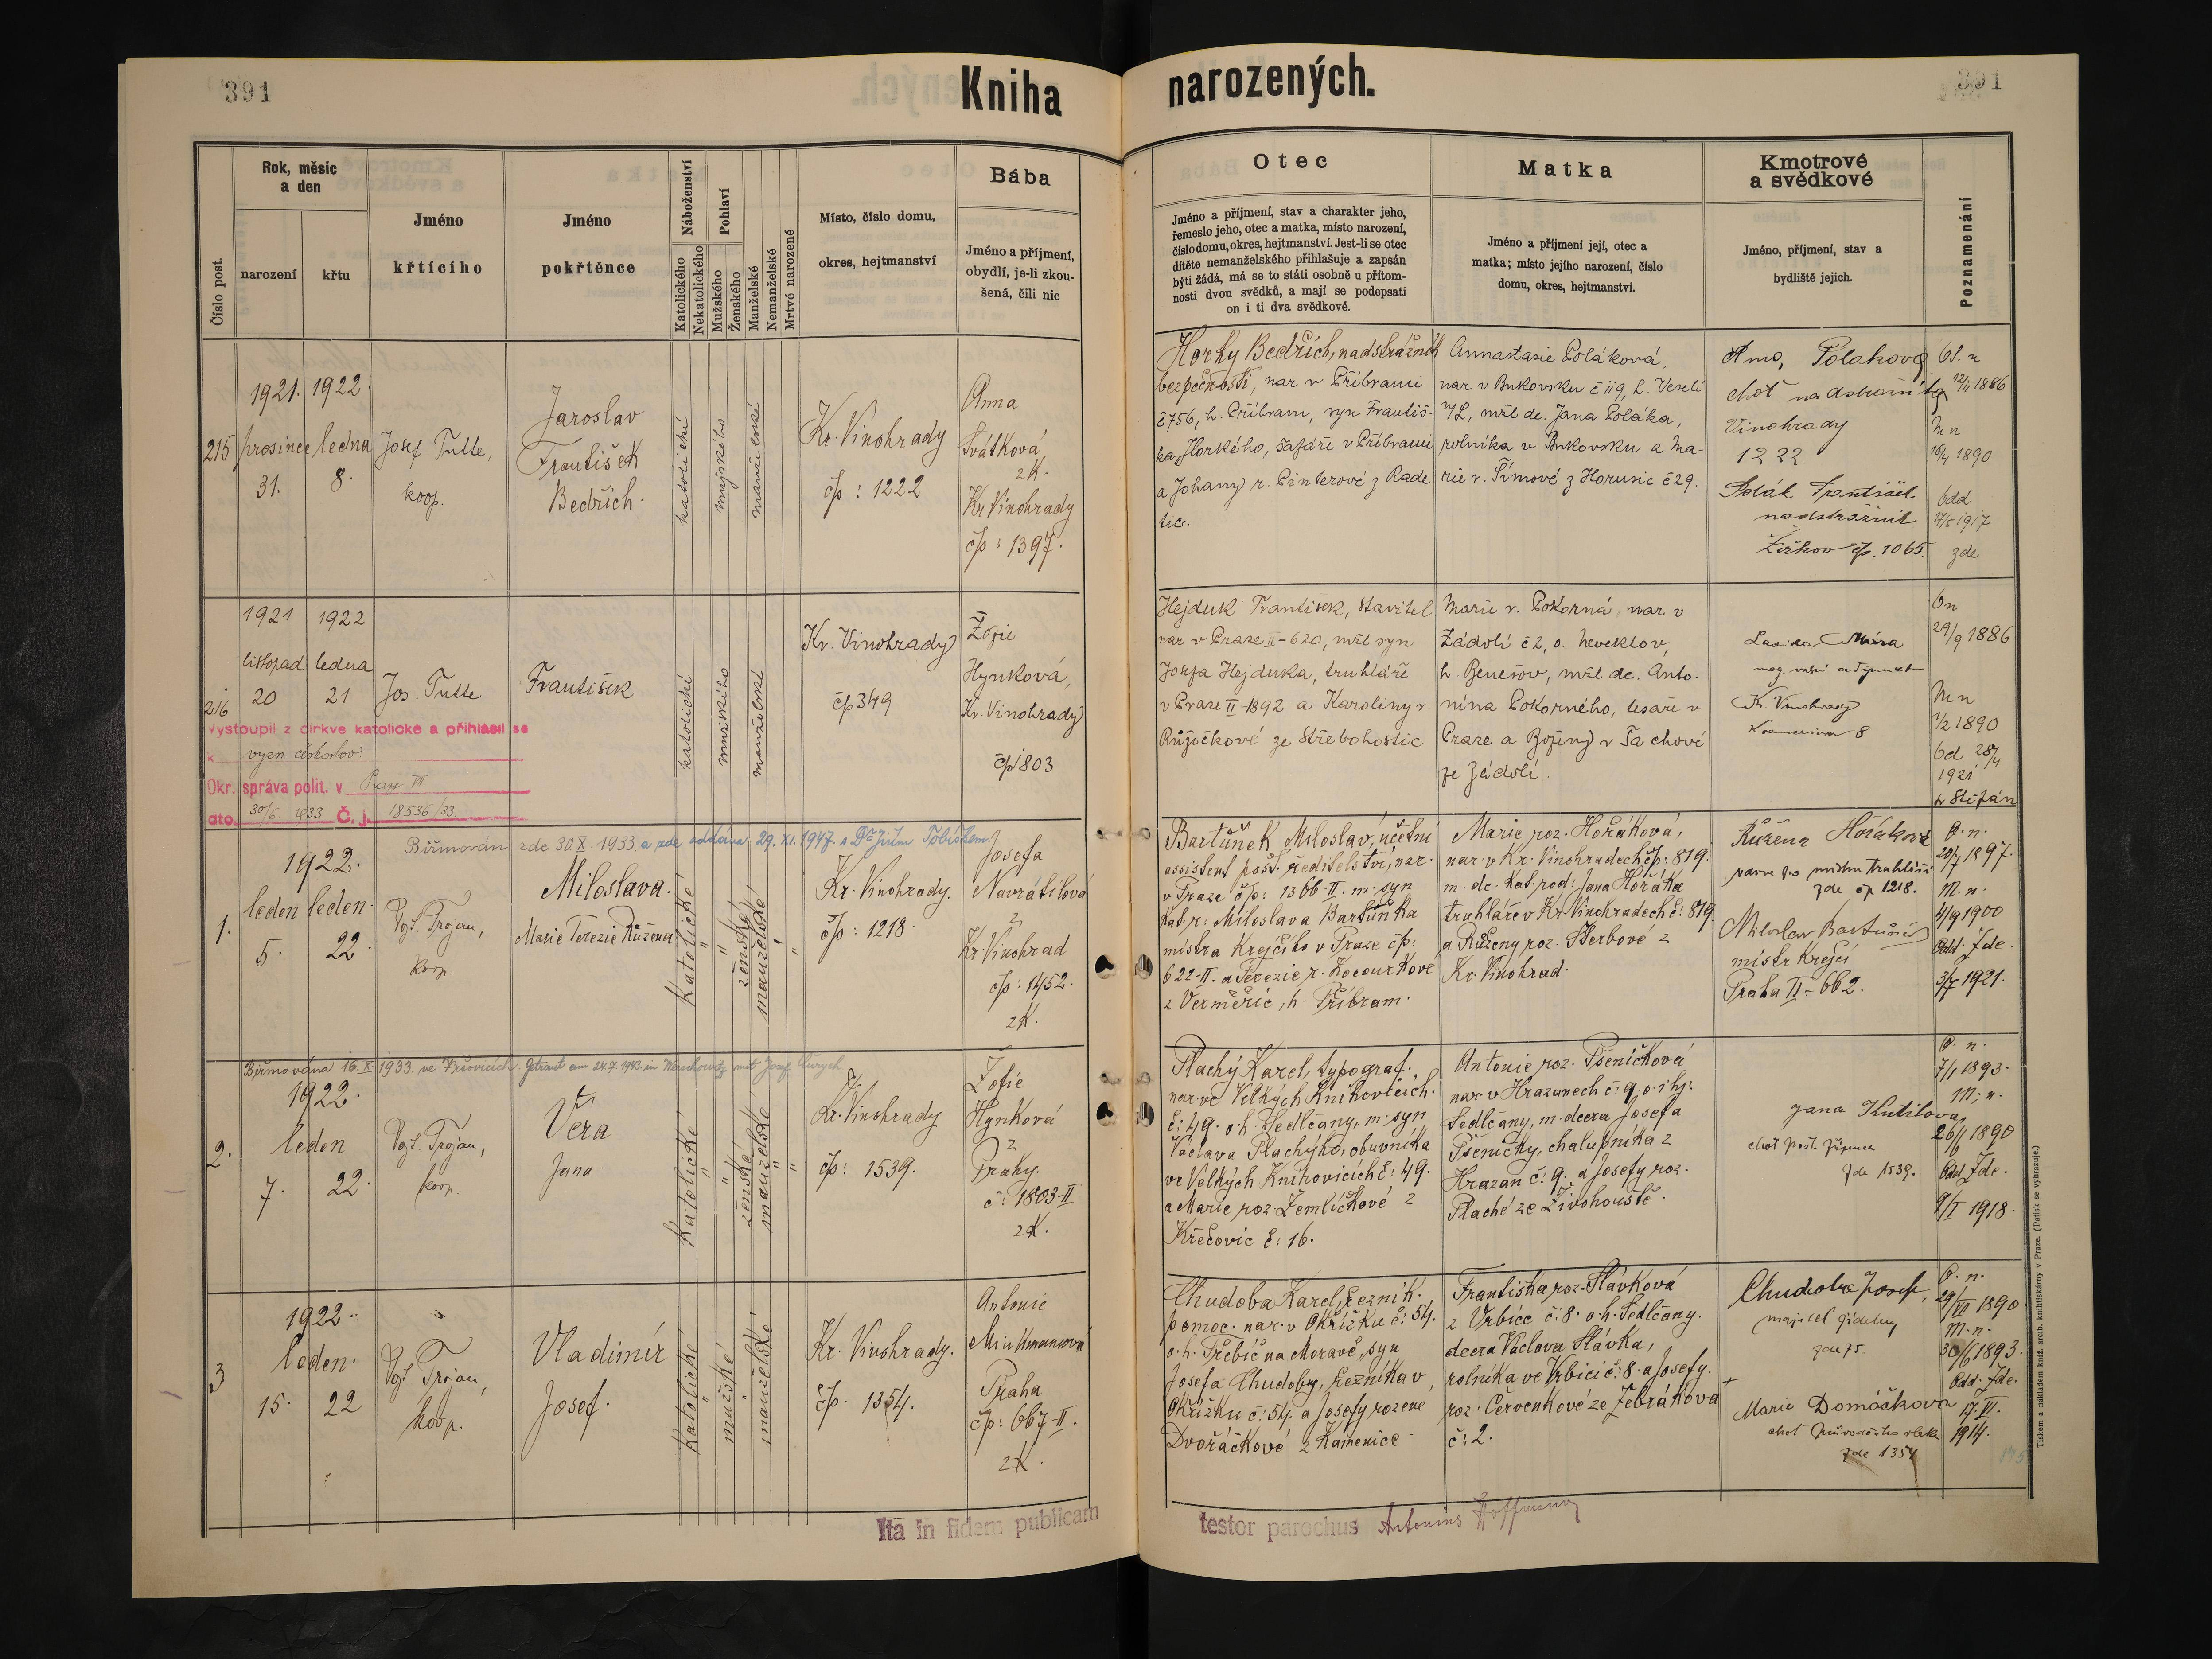 391
Kniha narozených.
391
Číslo post.
Rok, měsíc
a den
narození
křtu
Jméno
křtícího
Jméno
pokřtěnce
Náboženství
Katolického
Nekatolického
Pohlaví
Mužského
Ženského
Manželské
Nemanželské
Mrtvé narozené
Místo, číslo domu,
okres, hejtmanství
Bába
Jméno a příjmení,
obydlí, je-li zkou-
šená, čili nic
Otec
Jméno a příjmení, stav a charakter jeho,
řemeslo jeho, otec a matka, místo narození,
číslo domu, okres, hejtmanství. Jest-li se otec
dítěte nemanželského přihlašuje a zapsán
býti žádá, má se to státi osobně u přítom-
nosti dvou svědků, a mají se podepsati
on i ti dva svědkové.
Matka
Jméno a příjmení její, otec a
matka; místo jejího narození, číslo
domu, okres, hejtmanství.
Kmotrové
a svědkové
Jméno, příjmení, stav a
bydliště jejich.
Poznamenání
215
1921.
prosince
31.
1922.
ledna
8.
Josef Tutte,
koop.
Jaroslav
František
Bedřich.
katolické
mužského
manželské
Kr. Vinohrady
čp: 1222
Anna
Svátková,
zk.
Kr Vinohrady
čp: 1397.
Horký Bedřich, nadstrážník
bezpečnosti, nar v Příbrami
č 756, h. Příbram, syn Františ-
ka Horkého, šafáře v Příbrami
a Johany r. Pinterové z Rade
tic.
Annastasie Poláková,
nar v Bukovsku č 119, h. Veselí
n/L, mžl dc. Jana Poláka,
rolníka v Bukovsku a Ma-
rie r. Tímové z Horusic č 29.
Poláková
choť
Vinohrady
1222
Polák František
nadstrážník
Žižkov čp. 1065.
12/11 1886
Mn
16/4 1890
Odd
1917
zde
216
1921
listopad
20
1922
ledna
21
Jos. Tutte
František
katolické
mužského
manželské
Kr. Vinohrady
čp 349
Žofie
Hynková,
Kr. Vinohrady
čp 803
Hejduk František, stavitel
nar v Praze II-620, mžl syn
Josefa Hejduka, truhláře
v Praze II-1892 a Karoliny r
Růžičkové ze Střebohostic
Marie r. Pokorná, nar v
Zádolí č 2, o. Neveklov,
h. Benešov, mžl dc. Anto-
nína Pokorného, tesaře v
Praze a Boženy r Tachové
ze Zádolí.
Kr. Vinohrady
8
On
29/9 1886
Mn
1/2 1890
Od 28/4
1921
sv Štěpán
Vystoupil z církve katolické a přihlásil se
k vyzn. českoslov.
Okr. správa polit. v Praze
dto. 30/6 1933 Č. j. 18536/33
Biřmován zde 30 X. 1933 a zde oddána 29. XI. 1947. s Dr. Jiřím
1.
1922.
leden
5.
leden.
22.
Vojt. Trojan,
koop.
Miloslava.
Marie Terezie Růžena
Katolické
ženské
manželské
Kr. Vinohrady.
čp: 1218.
Josefa
Navrátilová
z
Kr. Vinohrad
čp: 1452.
zk.
Bartůněk Miloslav, účetní
assistent pošt. ředitelství, nar.
v Praze čp: 1366-II. m. syn
kat. r: Miloslava Bartůňka
mistra krejčího v Praze čp:
622-II. a Terezie r. Kocourkové
z Verměřic, h. Příbram.
Marie roz. Hořáková,
nar. v Kr. Vinohradech čp: 819.
m. dc. kat. rod: Jana Hořáka
truhláře v Kr. Vinohradech č: 819.
a Růženy roz. Šterbové z
Kr. Vinohrad.
Růžena Horáková
zde čp 1218.
Miloslav Bartůněk
mistr krejčí
Praha II-662.
O. n.
20/7 1897.
M. n.
4/9 1900
Odd. Zde.
1921.
Biřmována 16. X 1933. ve Vršovicích. Getraut am 24.7. 1943. in Werschowitz mit Josef
2.
1922.
leden
7.
22.
Vojt. Trojan,
koop.
Věra
Jana
Katolické
ženské
manželské
Kr. Vinohrady
čp: 1539.
Žofie
Hynková
z
Prahy.
č: 1803-II
zk.
Plachý Karel, typograf.
nar. ve Velkých Knihovicích.
č: 49. o. h. Sedlčany, m. syn
Václava Plachýho, obuvníka
ve Velkých Knihovicích č: 49.
a Marie roz. Zemličkové z
Křečovic č: 16.
Antonie roz. Pšeničková
nar. v Hrazanech č: 9. o. i hj:
Sedlčany, m. dcera Josefa
Pšeničky, chalupníka z
Hrazan č: 9. a Josefy roz.
Plaché ze Živohouště.
Jana Kutilova
choť pošt. zřízence
zde 1539.
O. n.
7/1 1893.
M. n.
26/1 1890
Odd. Zde.
9/I 1918.
3
1922.
leden.
15.
22
Vojt. Trojan,
koop.
Vladimír
Josef.
Katolické
mužské
manželské
Kr. Vinohrady.
čp. 1354.
Antonie
Praha
čp: 667-II.
zk.
Chudoba Karel, řezník.
pomoc. nar. v Okřížku č: 54.
o. h. Třebíč na Moravě, syn
Josefa Chudoby, řezníka v
Okřížku č: 54. a Josefy rozené
Dvořáčkové z Kamenice
Františka roz. Slávková
z Vrbice č: 8. o. h. Sedlčany.
dcera Václava Slávka,
rolníka ve Vrbici č: 8. a Josefy.
roz. Červenkové ze Zebrákova
č: 2.
Chudoba Josef,
majitel jídelny
zde 75.
Marie Domáčkova
choť průvodčího vlaků
zde 1354
O. n.
29/VII 1890
M. n.
30/6 1893.
Odd. Zde.
17. VI.
1914.
Ita in fidem publicam
testor parochus Antonius Hoffmann
Tiskem a nákladem kníž. arcib. knihtiskárny v Praze. (Patisk se vyhrazuje.)